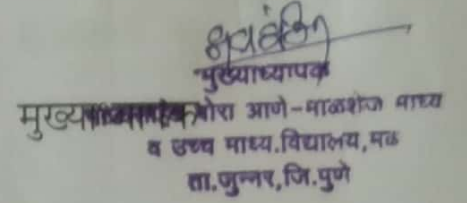 मुख्याध्यापक
मुख्याध्यापक मोरा आणे-माळशेज माध्य
व उच्च माध्य.विद्यालय,मढ
ता.जुन्नर,जि.पुणे